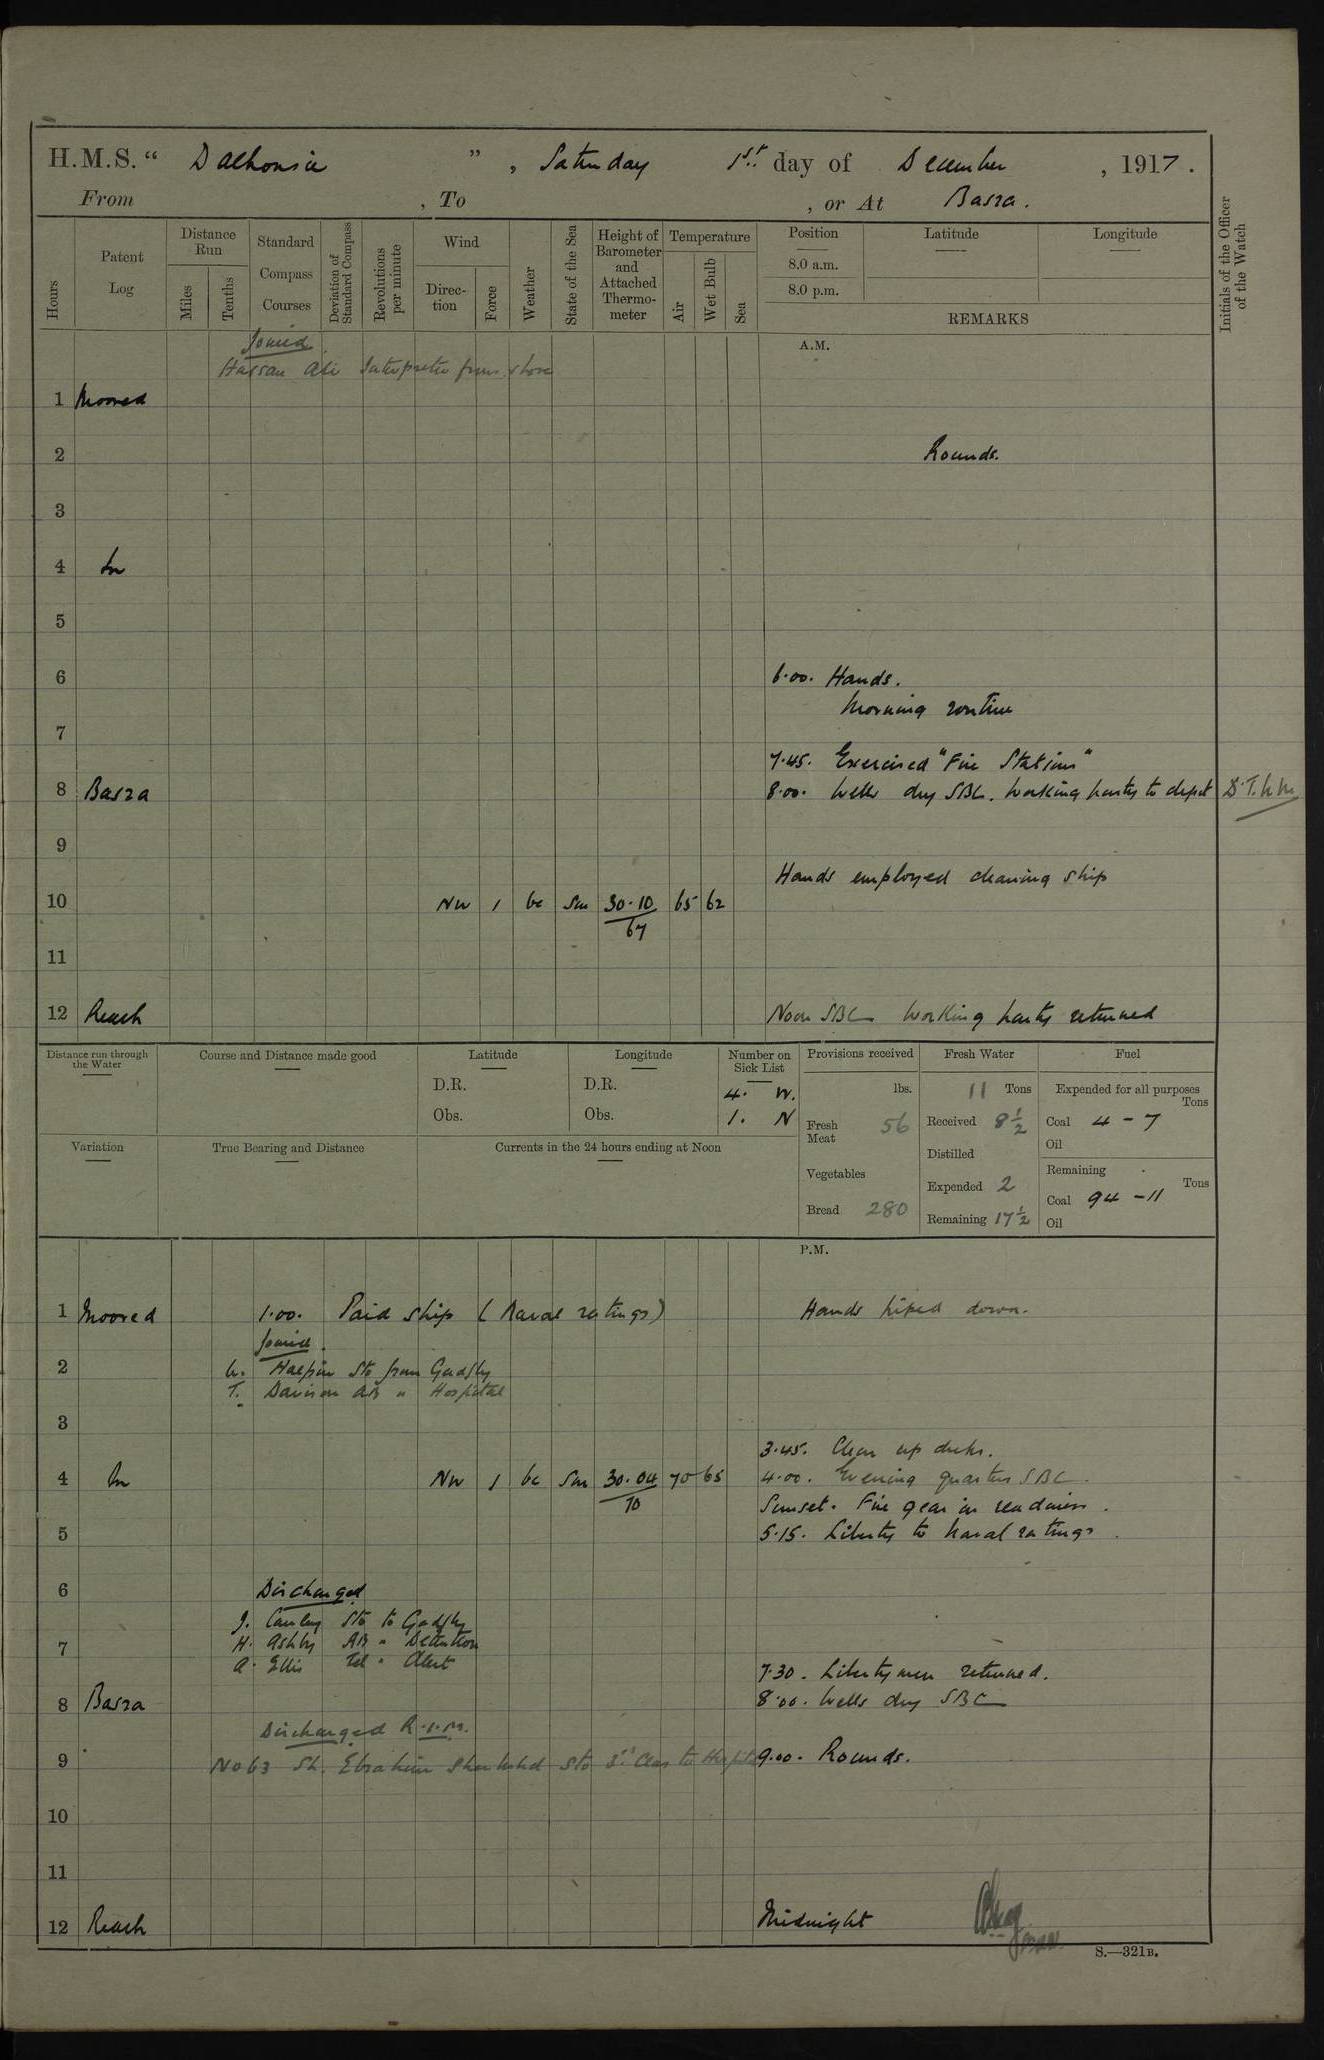 H.M.S. " Dalhousie " , Saturday 1st day of December , 1917.
From , To , or At Basra.
Hours
Patent Log
Distance Run
Miles
Tenths
Standard Compass Courses
Deviation of Standard Compass
Revolutions per minute
Wind
Direction
Force
Weather
State of the Sea
Height of Barometer and Attached Thermometer
Temperature
Air
Wet Bulb
Sea
Position
8.0 a.m.
8.0 p.m.
Latitude
Longitude
REMARKS
Initials of the Officer of the Watch
Joined A.M.
Hassan Ali Interpreter from shore
1 Moored
2 Rounds.
3
4 In
5
6 6.00. Hands.
Morning routine
7
7.45. Exercised "Fire Stations"
8 Basra 8.00. Wells dry SBC. Working party to depot
9
Hands employed cleaning ship
10 NW 1 bc Sm 30.10 65 62
67
11
12 Reach Noon SBC Working party returned
Distance run through the Water
Course and Distance made good
Latitude
D.R.
Obs.
Longitude
D.R.
Obs.
Number on Sick List
4. W.
1. N
Provisions received
lbs.
Fresh Meat 56
Vegetables
Bread 280
Fresh Water
11 Tons
Received 8½
Distilled
Expended 2
Remaining 17½
Fuel
Expended for all purposes
Tons
Coal 4 - 7
Oil
Remaining
Tons
Coal 94 - 11
Oil
Variation
True Bearing and Distance
Currents in the 24 hours ending at Noon
P.M.
1 Moored 1.00. Paid ship (Naval ratings) Hands piped down.
Joined.
2 W. Halpin Sto from Gadfly
T. Davison AB " Hospital
3
3.45. Clear up decks.
4 In NW 1 bc Sm 30.04 70 65 4.00. Evening quarters SBC.
70
Sunset. Fire gear in readiness.
5 5.15. Liberty to Naval ratings.
6 Discharged
J. Cauley Sto to Gadfly
7 H. Ashby AB " Detention
A. Ellis Tel " Alert
7.30. Liberty men returned.
8 Basra 8.00. Wells dry SBC
Discharged R.I.M.
9 No 63 Sh. Ebrahim Sto 2nd Clas to Hospital 9.00. Rounds.
10
11
12 Reach Midnight
S.—321B.